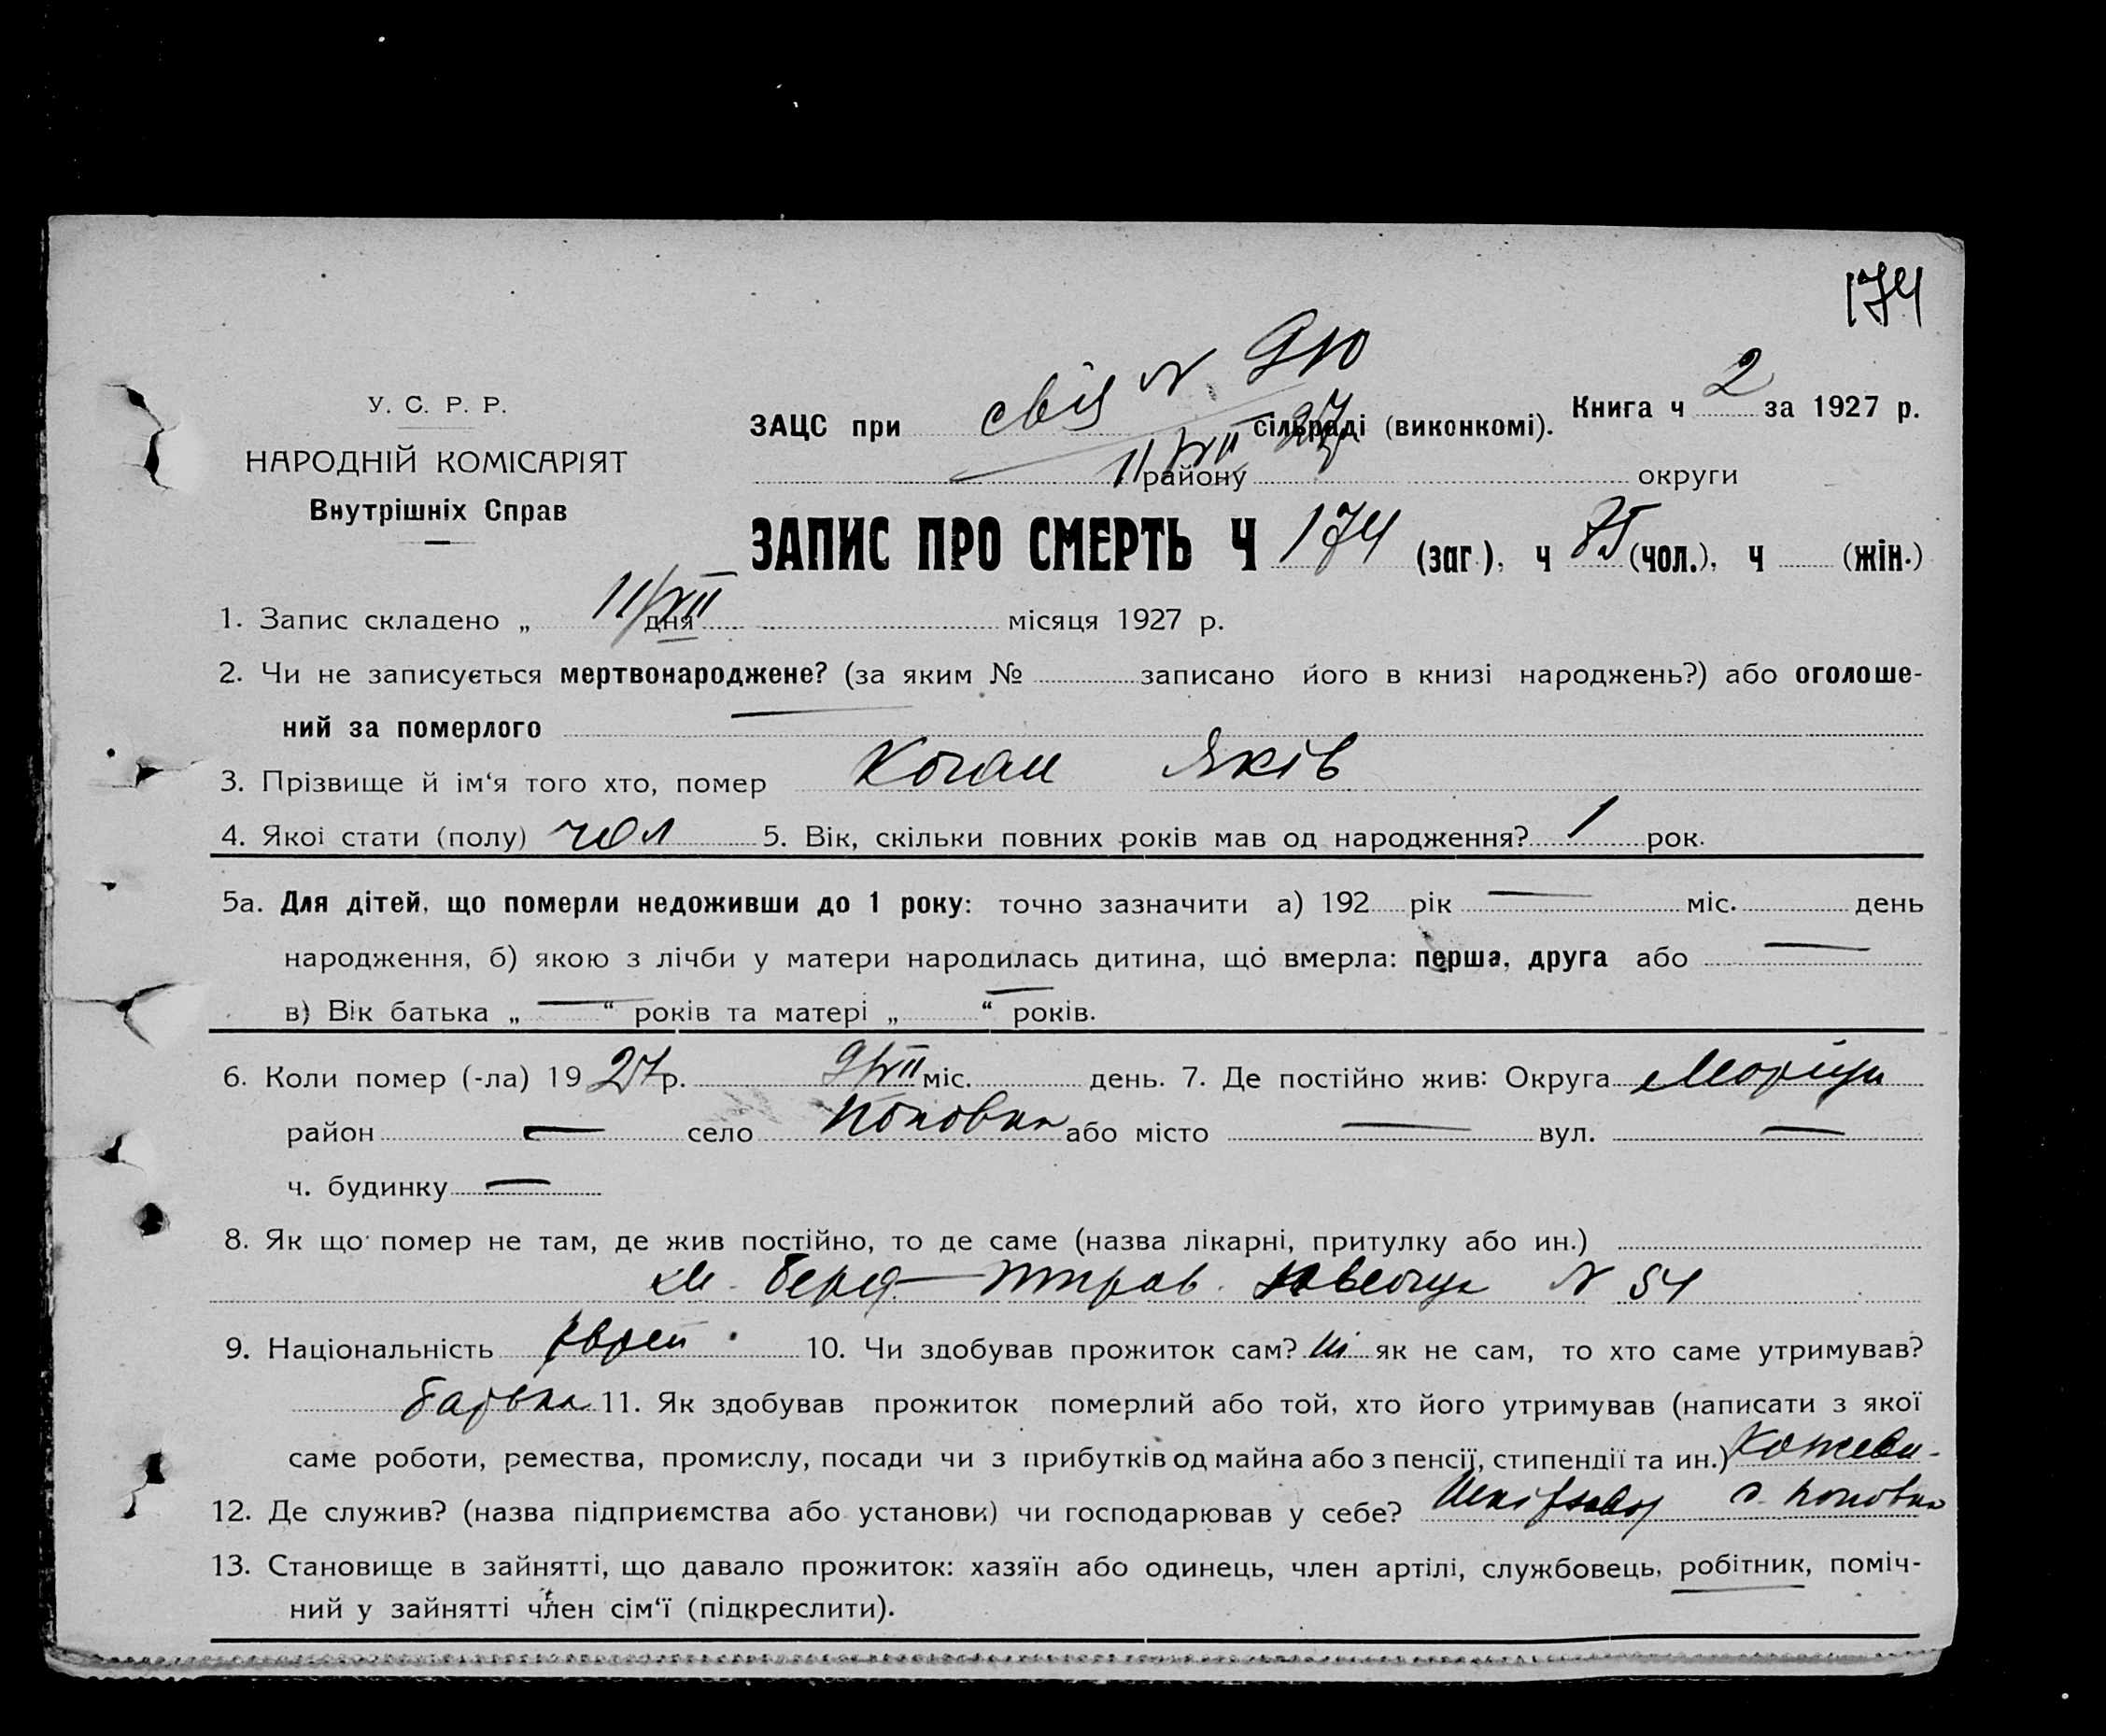 174
свід N 910
У. С. Р. Р.
НАРОДНІЙ КОМІСАРІЯТ
Внутрішніх Справ
ЗАЦС при сільраді (виконкомі). Книга ч 2 за 1927 р.
11/VII 27
району округи
ЗАПИС ПРО СМЕРТЬ Ч 174 (заг.), ч 75 (чол.), ч (жін.)
1. Запис складено „ 11/VII дня місяця 1927 р.
2. Чи не записується мертвонароджене? (за яким № записано його в книзі народжень?) або оголоше-
ний за померлого —
3. Прізвище й ім‘я того хто, помер Коган Яків
4. Якої стати (полу) чол 5. Вік, скільки повних років мав од народження? 1 рок.
5а. Для дітей, що померли недоживши до 1 року: точно зазначити а) 192 рік — міс. день
народження, б) якою з лічби у матери народилась дитина, що вмерла: перша, друга або —
в) Вік батька „ — “ років та матері „ — “ років.
6. Коли помер (-ла) 19 27 р. 9/VII міс. день. 7. Де постійно жив: Округа
район — село Поповка або місто — вул. —
ч. будинку —
8. Як що помер не там, де жив постійно, то де саме (назва лікарні, притулку або ин.)
N 54
9. Національність Єврей 10. Чи здобував прожиток сам? ні як не сам, то хто саме утримував?
батько 11. Як здобував прожиток померлий або той, хто його утримував (написати з якої
саме роботи, ремества, промислу, посади чи з прибутків од майна або з пенсії, стипендії та ин.) Кожеви-
12. Де служив? (назва підприємства або установи) чи господарював у себе? с. Поповка
13. Становище в зайнятті, що давало прожиток: хазяїн або одинець, член артілі, службовець, робітник, поміч-
ний у зайнятті член сім‘ї (підкреслити).